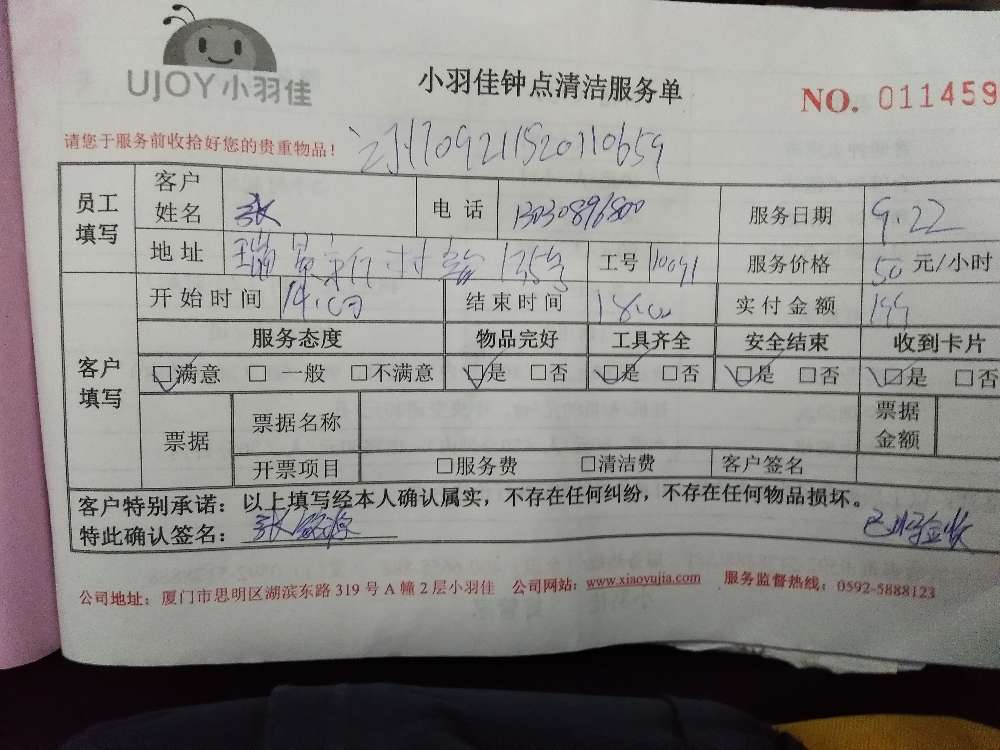 UJOY小羽佳
小羽佳钟点清洁服务单
NO. 011459
请您于服务前收拾好您的贵重物品！
1709211520110659
员工填写 客户姓名 张 电话 13030896800 服务日期 9.22
地址 135号 工号 10091 服务价格 50 元/小时
客户填写 开始时间 14.00 结束时间 18.00 实付金额 199
服务态度 物品完好 工具齐全 安全结束 收到卡片
☑满意 □一般 □不满意 ☑是 □否 ☑是 □否 ☑是 □否 ☑是 □否
票据 票据名称 票据金额
开票项目 □服务费 □清洁费 客户签名
客户特别承诺：以上填写经本人确认属实，不存在任何纠纷，不存在任何物品损坏。
特此确认签名：张 已班金收
公司地址：厦门市思明区湖滨东路 319 号 A 幢 2 层小羽佳 公司网站：www.xiaoyujia.com 服务监督热线：0592-5888123